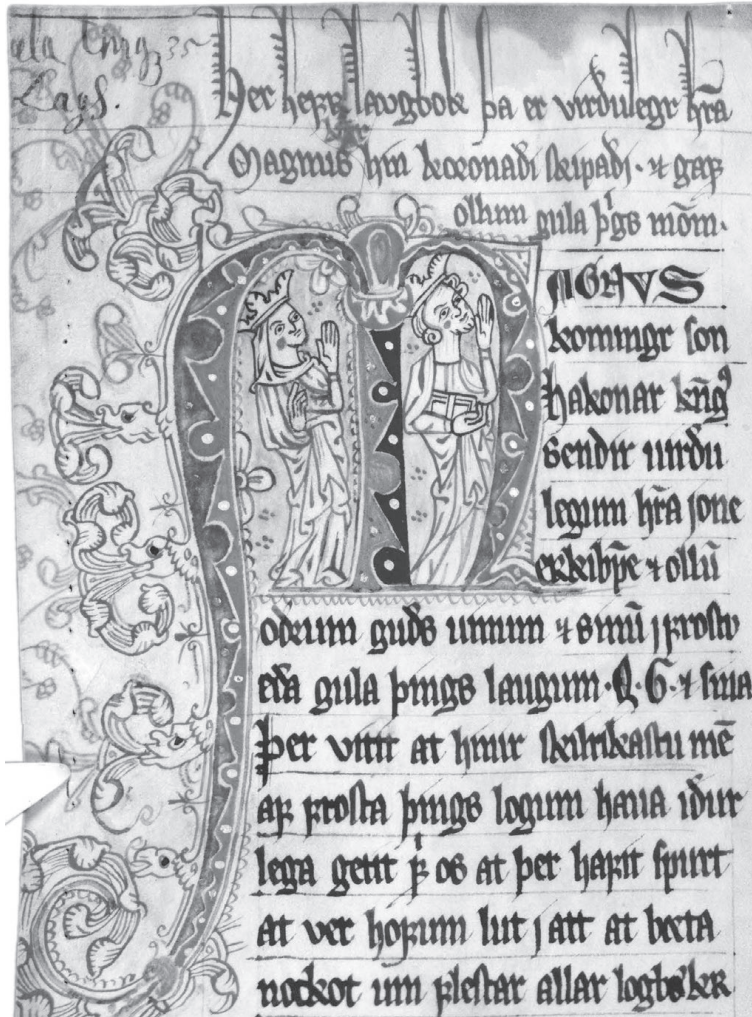 Her hefr laugbok þa er virðulegr hr̄a
Magnus hin koronaði skipaði · ⁊ gaf
ollum gula þı̄gs mōm·
MAGNVS
konungr son
hakonar kn̄gs
sendir uirðu
legum hr̄a jone
erkibp̄e ⁊ ollū
odrum guðs uinum ⁊ sinū j frosto
eða gula þings laugum · Q · G · ⁊ sina
þer vitit at hinir skilrikastu mē
af frosta þings logum haua iður
lega getit f͛ os at þer hafit spurt
at ver hofum lut j att at bæta
nockot um flestar allar logbǿkr